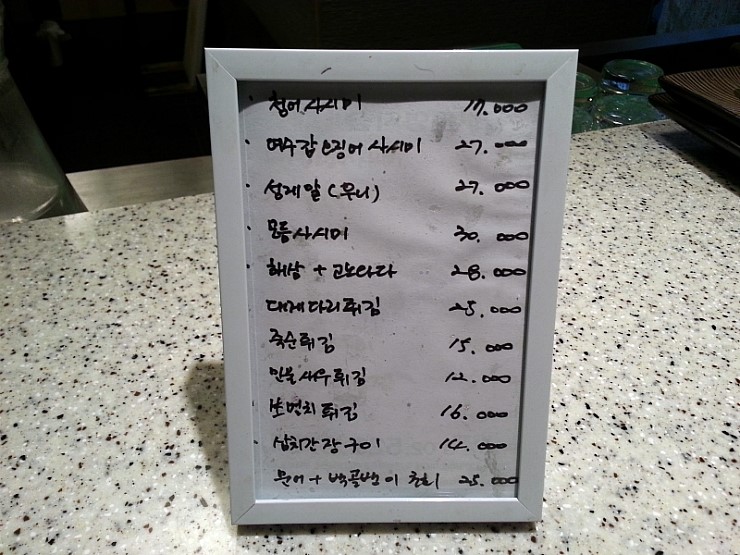 · 청어사시미 17.000
· 여수갑오징어 사시미 27.000
· 성게알 (우니) 27.000
· 모듬사시미 30.000
해삼 + 고노와다 28.000
대게다리튀김 25.000
죽순튀김 15.000
민물새우튀김 12.000
보면치튀김 16.000
삼치간장구이 14.000
문어 + 백골뱅이 초회 25.000